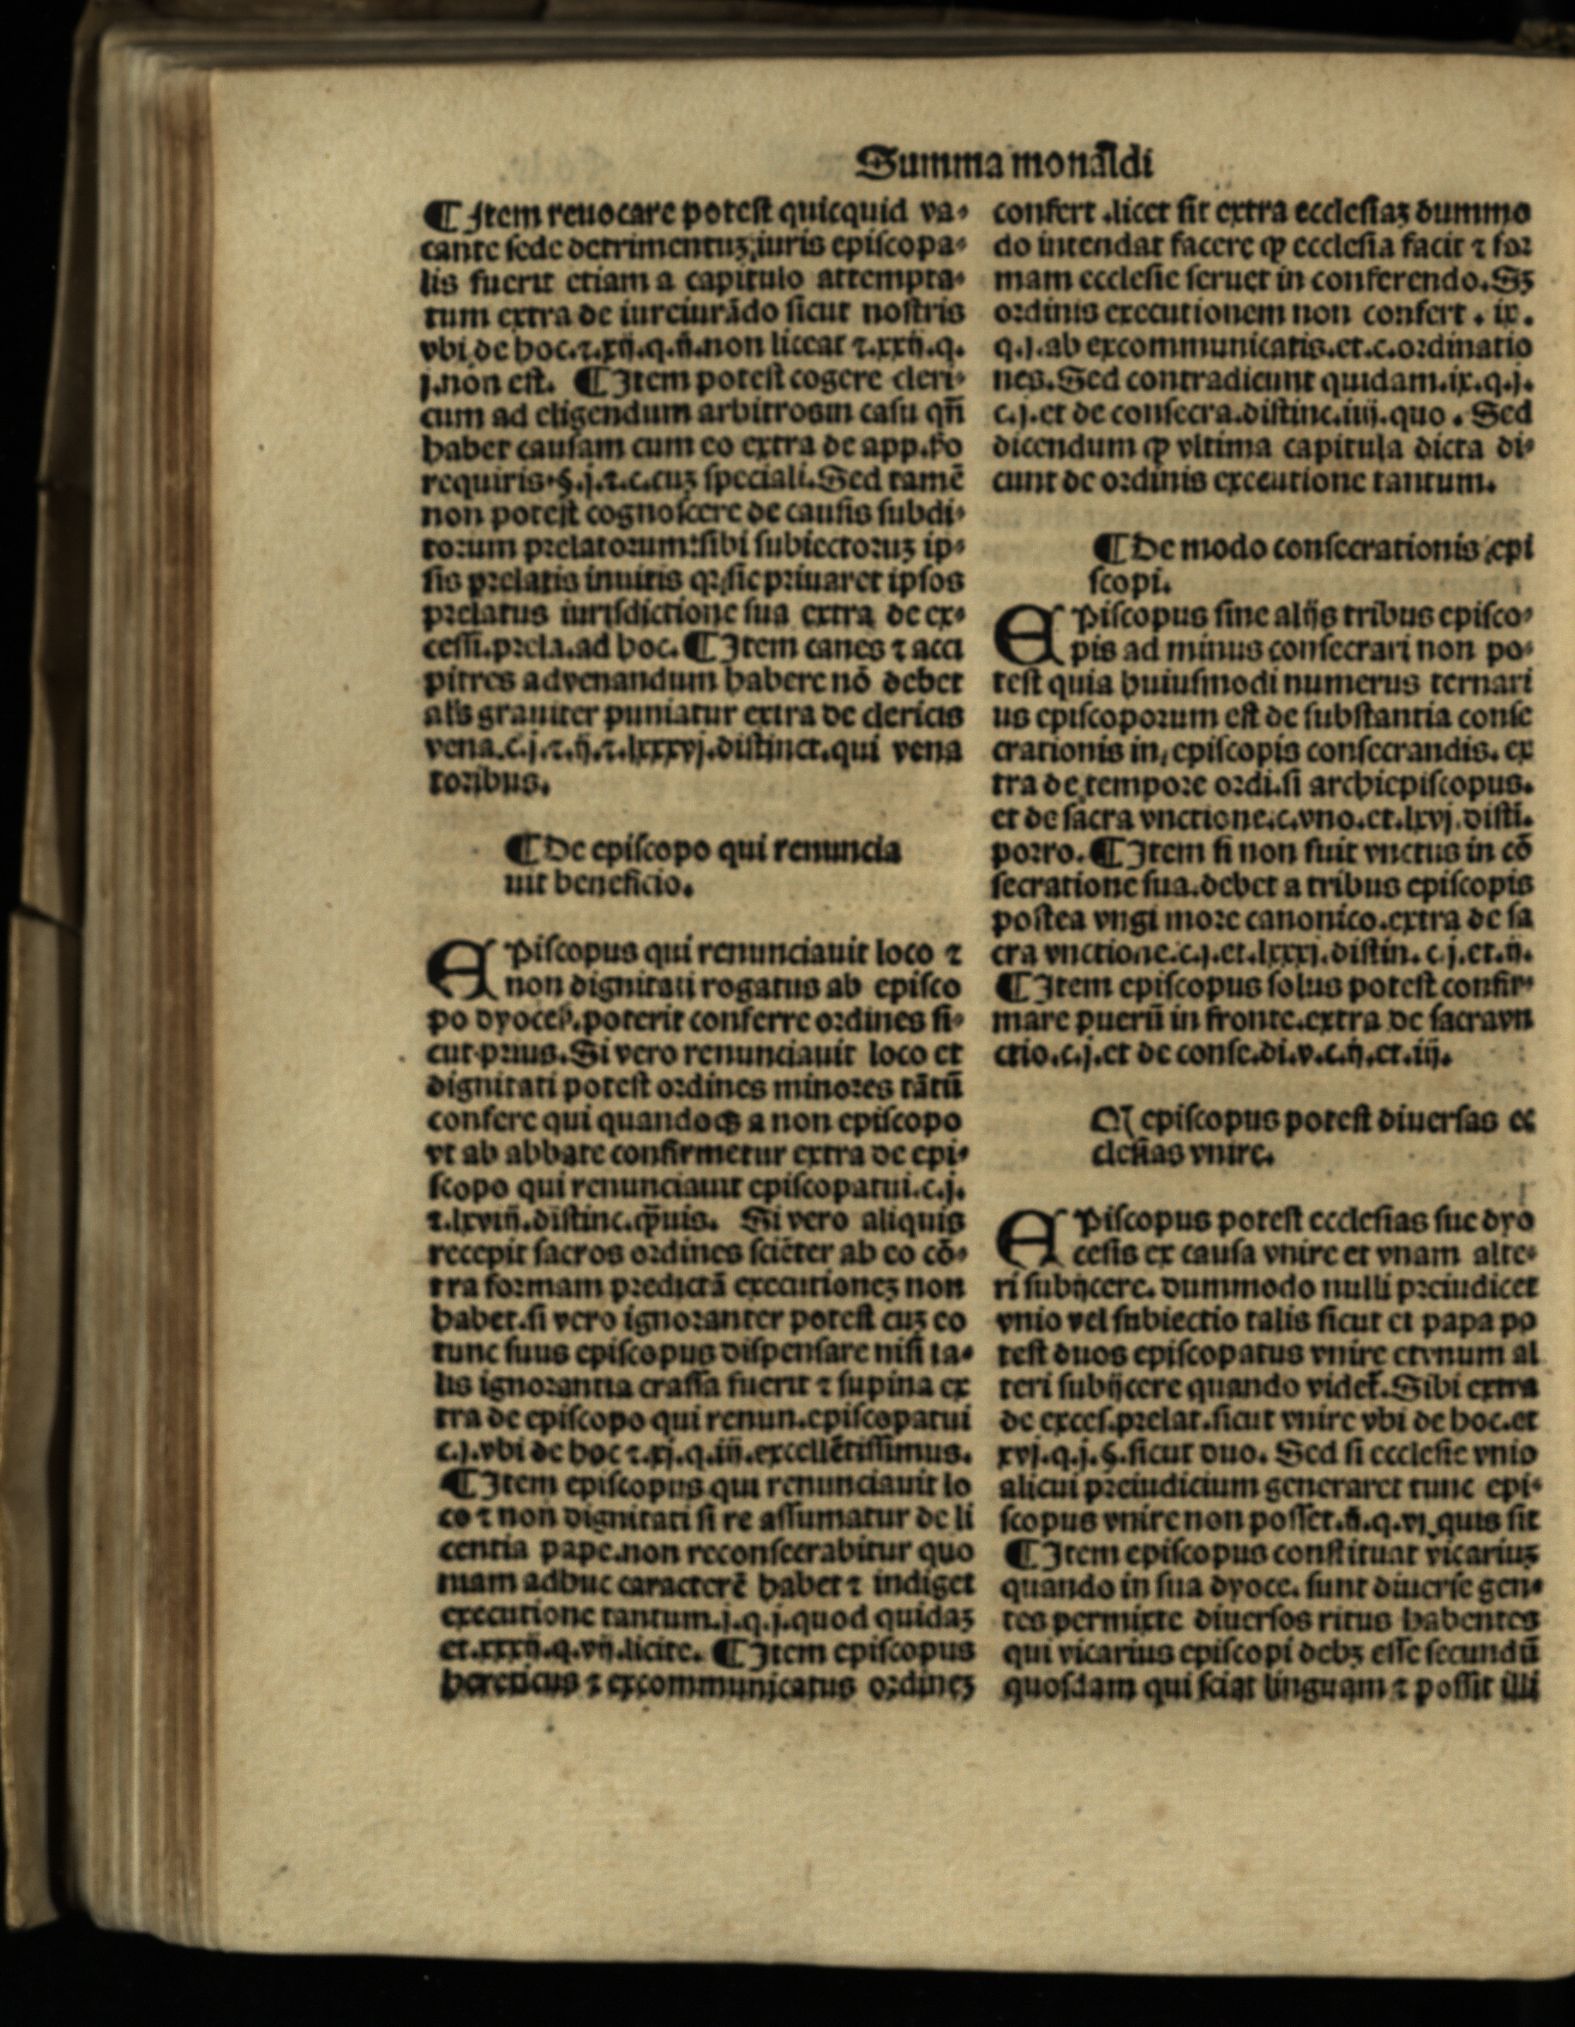 Summa monaldi
¶Item reuocare potest quicquid va-
cante sede detrimentuʒ iuris episcopa-
lis fuerit etiam a capitulo attempta-
tum extra de iureiurãdo sicut nostris
vbi de hoc.⁊.xij.q.ij.non liceat ⁊.xxij.q.
j.non est. ¶Item potest cogere cleri-
cum ad eligendum arbitrosin casu qñ
habet causam cum eo extra de app.
requiris.§.j.⁊.c.cuʒ speciali.Sed tamẽ
non potest cognoscere de causis subdi-
torum prelatorum:sibi subiectoruʒ ip-
sis prelatis inuitis qꝛ sic priuaret ipsos
prelatus iurisdictione sua extra de ex-
cessi.prela.ad hoc.¶Item canes ⁊ acci
pitres advenandum habere nõ debet
als grauiter puniatur extra de clericis
vena.c.j.⁊.ij.⁊.lxxxvj.distinct.qui vena
toribus.
¶De episcopo qui renuncia
uit beneficio.
EPiscopus qui renunciauit loco ⁊
non dignitati rogatus ab episco
po dyoceš.poterit conferre ordines si-
cut prius.Si vero renunciauit loco et
dignitati potest ordines minores tãtũ
confere qui quandoqꝫ a non episcopo
vt ab abbate confirmetur extra de epi-
scopo qui renunciauit episcopatui.c.j.
⁊.lxviij.distinc.q̃uis. Si vero aliquis
recepit sacros ordines sciẽter ab eo cõ-
tra formam predictã executioneʒ non
habet.si vero ignoranter potest cuʒ eo
tunc suus episcopus dispensare nisi ta-
lis ignorantia crassa fuerit ⁊ supina ex
tra de episcopo qui renun.episcopatui
c.j.vbi de hoc ⁊.xj.q.iij.excellẽtissimus.
¶Item episcopus qui renunciauit lo
co ⁊ non dignitati si re assumatur de li
centia pape.non reconsecrabitur quo
niam adhuc caracterẽ habet ⁊ indiget
executione tantum.j.q.j.quod quidaʒ
et.xxxij.q.vij.licite. ¶Item episcopus
hereticus ⁊ excommunicatus ordineʒ
confert .licet sit extra ecclesiaʒ dummo
do intendat facere ꝙ ecclesia facit ⁊ for
mam ecclesie seruet in conferendo.Sʒ
ordinis executionem non confert . ix.
q.j.ab excommunicatis.et.c.ordinatio
nes.Sed contradicunt quidam.ix.q.j.
c.j.et de consecra.distinc.iiij.quo . Sed
dicendum ꝙ vltima capitula dicta di-
cunt de ordinis executione tantum.
¶De modo consecrationis epi
scopi.
EPiscopus sine alijs tribus episco-
pis ad minus consecrari non po-
test quia huiusmodi numerus ternari
us episcoporum est de substantia conse
crationis in episcopis consecrandis. ex
tra de tempore ordi.si archiepiscopus.
et de sacra vnctione.c.vno.et.lxvj.disti.
porro.¶Item si non fuit vnctus in cõ
secratione sua.debet a tribus episcopis
postea vngi more canonico.extra de sa
cra vnctione.c.j.et.lxxxj.distin. c.j.et.ij.
¶Item episcopus solus potest confir-
mare puerũ in fronte.extra de sacravn
ctio.c.j.et de conse.di.v.c.ij.et.iij.
episcopus potest diuersas ec
clesias vnire.
EPiscopus potest ecclesias sue dyo
cesis ex causa vnire et vnam alte-
ri subijcere. dummodo nulli preiudicet
vnio vel subiectio talis sicut et papa po
test duos episcopatus vnire etvnum al
teri subijcere quando videt̃.Sibi extra
de exces.prelat.sicut vnire vbi de hoc.et
xvj.q.j.§.sicut duo. Sed si ecclesie vnio
alicui preiudicium generaret tunc epi-
scopus vnire non posset.ij.q.vj.quis sit
¶Item episcopus constituat vicariuʒ
quando in sua dyoce. sunt diuerse gen-
tes permixte diuersos ritus habentes
qui vicarius episcopi debʒ esse secundũ
quosdam qui sciat linguam ⁊ possit illi